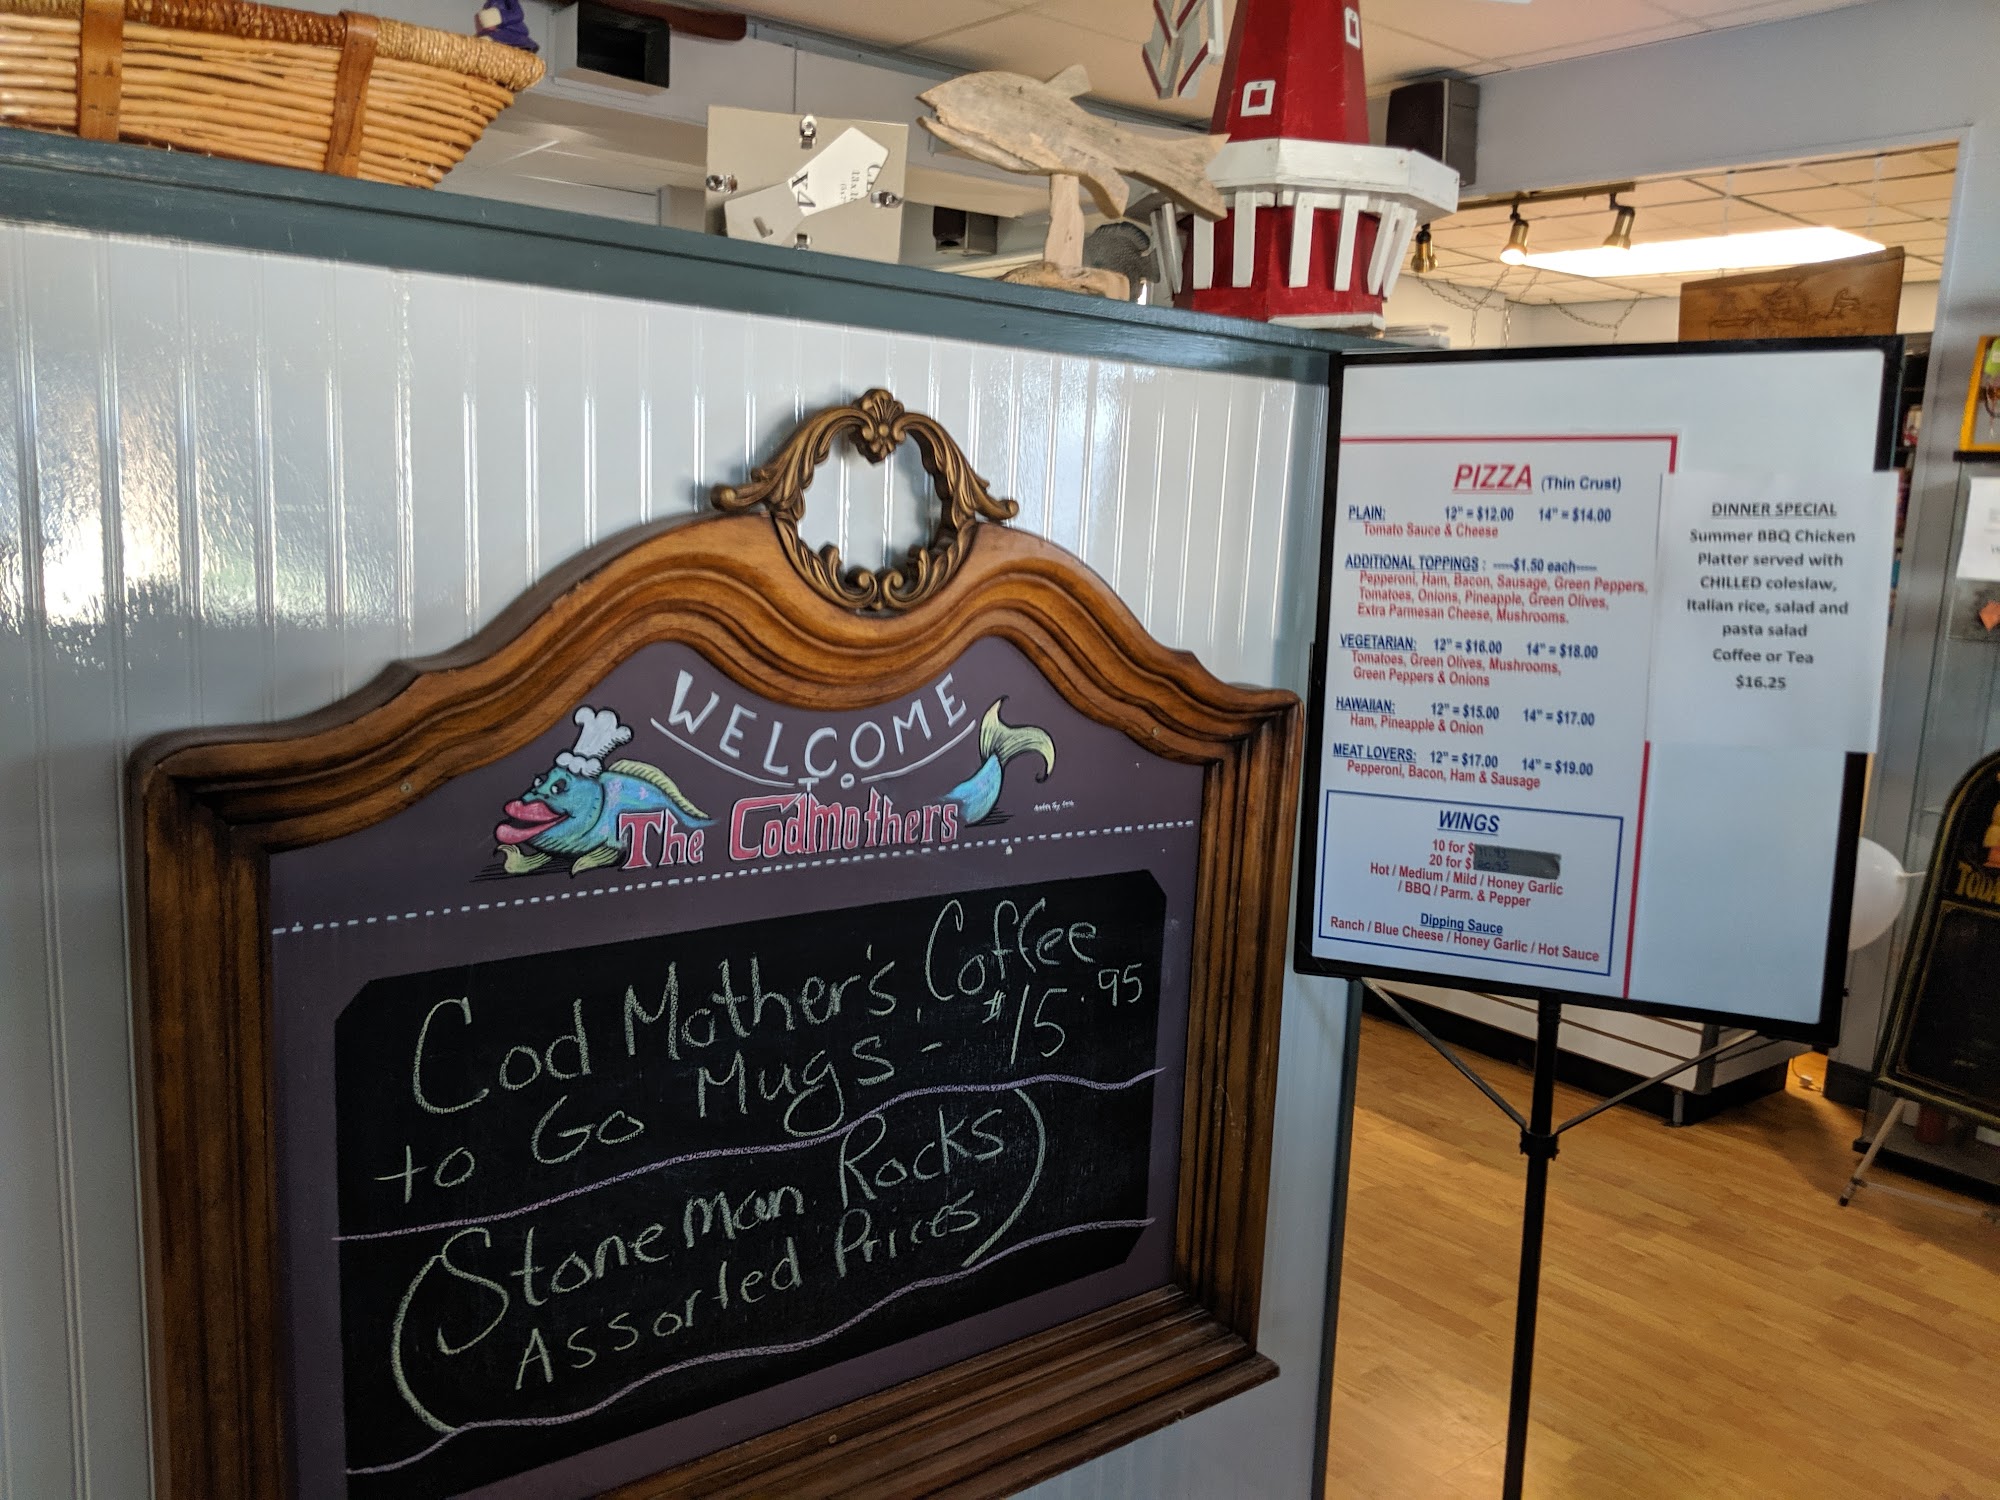 WELCOME
TO
The Codmothers
Cod Mother's Coffee
to Go Mugs - $15.95
Stoneman Rocks
Assorted Prices
PIZZA (Thin Crust)
PLAIN: 12" = $12.00 14" = $14.00
Tomato Sauce & Cheese
ADDITIONAL TOPPINGS : ----$1.50 each----
Pepperoni, Ham, Bacon, Sausage, Green Peppers,
Tomatoes, Onions, Pineapple, Green Olives,
Extra Parmesan Cheese, Mushrooms.
VEGETARIAN: 12" = $16.00 14" = $18.00
Tomatoes, Green Olives, Mushrooms,
Green Peppers & Onions
HAWAIIAN: 12" = $15.00 14" = $17.00
Ham, Pineapple & Onion
MEAT LOVERS: 12" = $17.00 14" = $19.00
Pepperoni, Bacon, Ham & Sausage
WINGS
10 for $
20 for $
Hot / Medium / Mild / Honey Garlic
/ BBQ / Parm. & Pepper
Dipping Sauce
Ranch / Blue Cheese / Honey Garlic / Hot Sauce
DINNER SPECIAL
Summer BBQ Chicken
Platter served with
CHILLED coleslaw,
Italian rice, salad and
pasta salad
Coffee or Tea
$16.25